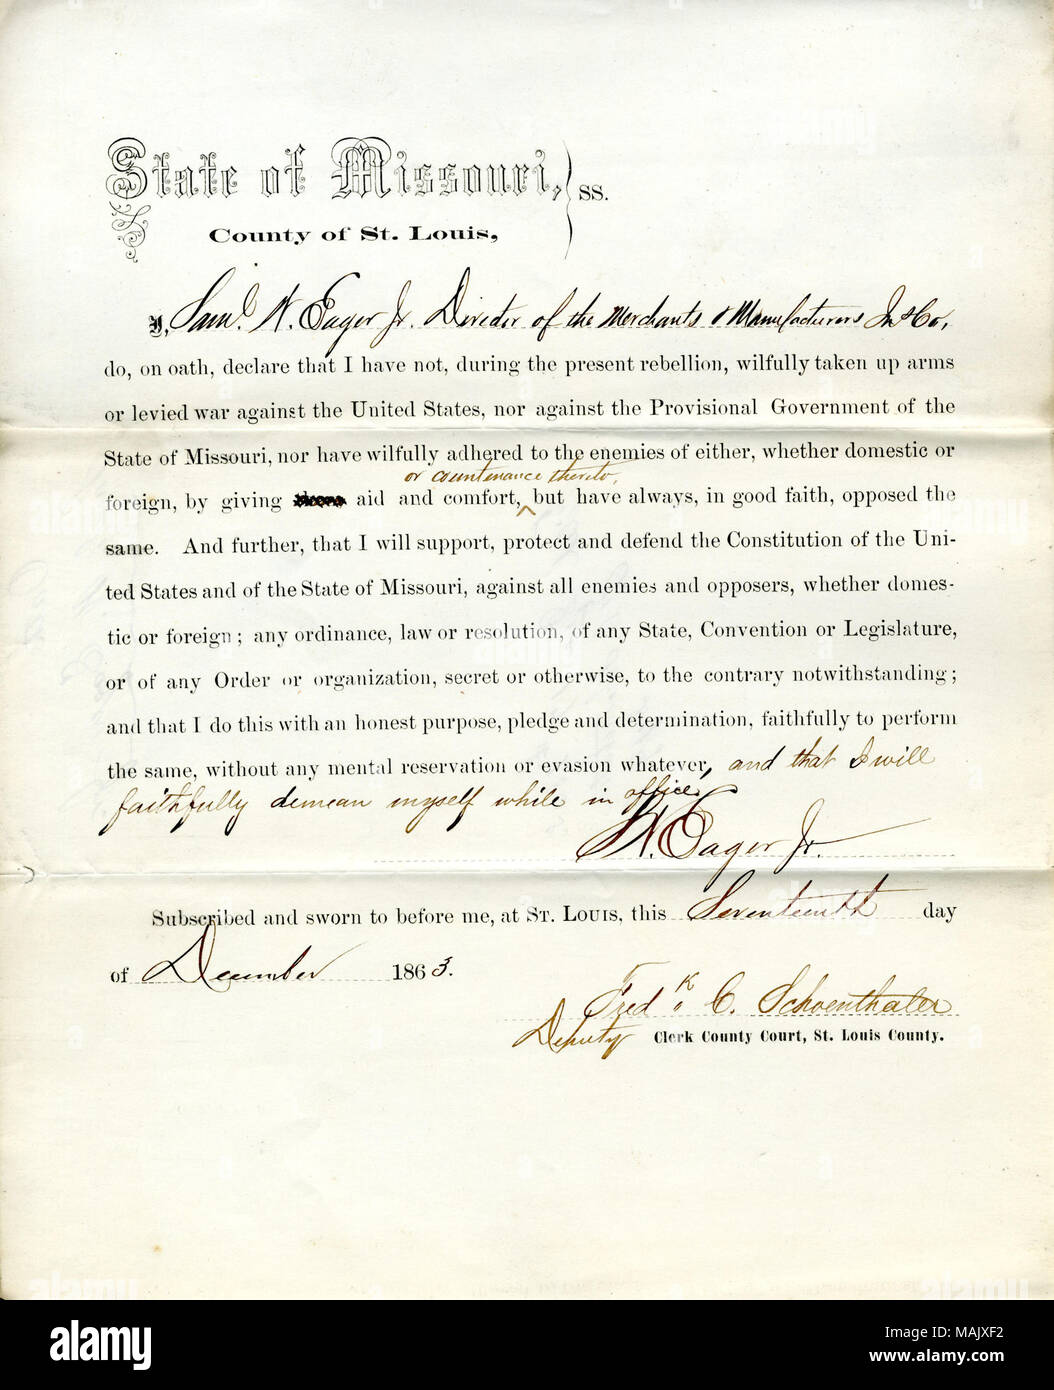 State of Missouri, ss.
County of St. Louis,
I, Saml. N. Eager Jr. Director of the Merchants & Manufacturers Ins Co.
do, on oath, declare that I have not, during the present rebellion, wilfully taken up arms
or levied war against the United States, nor against the Provisional Government of the
State of Missouri, nor have wilfully adhered to the enemies of either, whether domestic or
or countenance thereto,
foreign, by giving aid and comfort, but have always, in good faith, opposed the
same. And further, that I will support, protect and defend the Constitution of the Uni-
ted States and of the State of Missouri, against all enemies and opposers, whether domes-
tic or foreign; any ordinance, law or resolution, of any State, Convention or Legislature,
or of any Order or organization, secret or otherwise, to the contrary notwithstanding;
and that I do this with an honest purpose, pledge and determination, faithfully to perform
the same, without any mental reservation or evasion whatever, and that I will
faithfully demean myself while in office.
N. Eager Jr.
Subscribed and sworn to before me, at St. Louis, this Seventeenth day
of December 1863.
Fredk. C. Schoenthaler
Deputy Clerk County Court, St. Louis County.
alamy
Image ID: MAJXF2
www.alamy.com